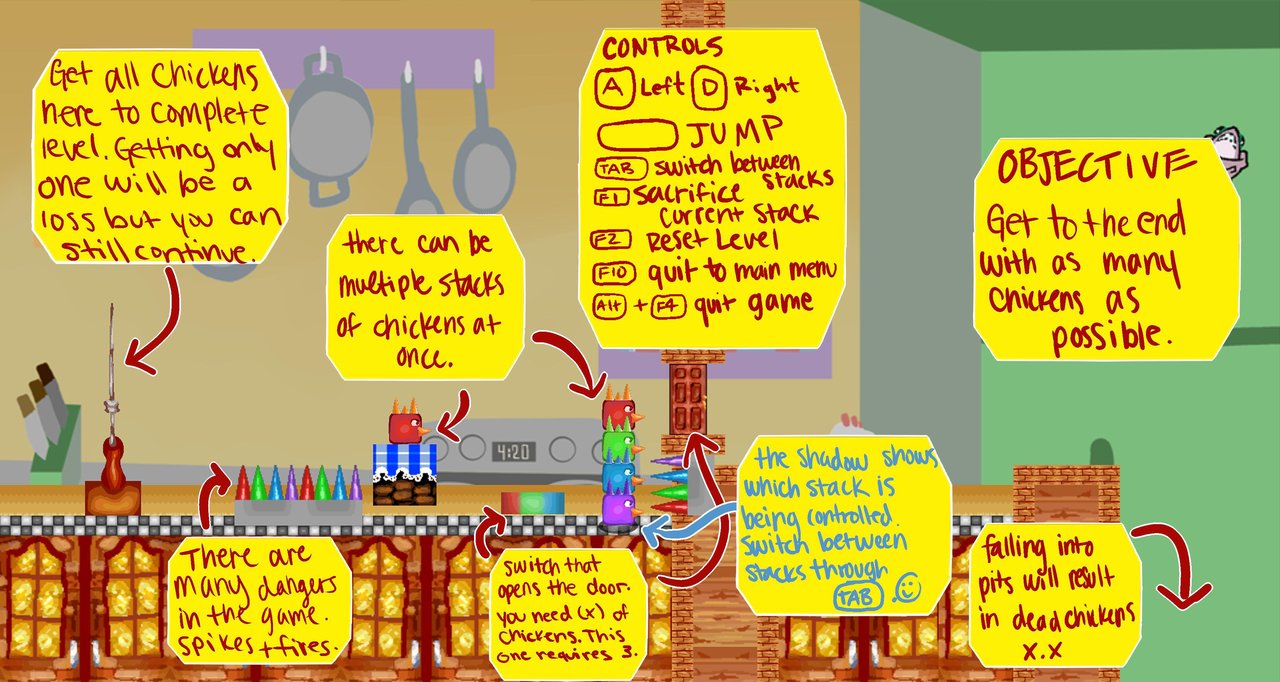 Get all chickens
here to complete
level. Getting only
one will be a
loss but you can
still continue.
there can be
multiple stacks
of chickens at
once.
CONTROLS
A Left D Right
JUMP
TAB switch between
stacks
F1 sacrifice
current stack
F2 Reset Level
F10 quit to main menu
Alt + F4 quit game
OBJECTIVE
Get to the end
with as many
chickens as
possible.
4:20
There are
many dangers
in the game.
spikes + fires.
switch that
opens the door.
you need (x) of
chickens. This
one requires 3.
the shadow shows
which stack is
being controlled.
switch between
stacks through
TAB.
falling into
pits will result
in dead chickens
x.x